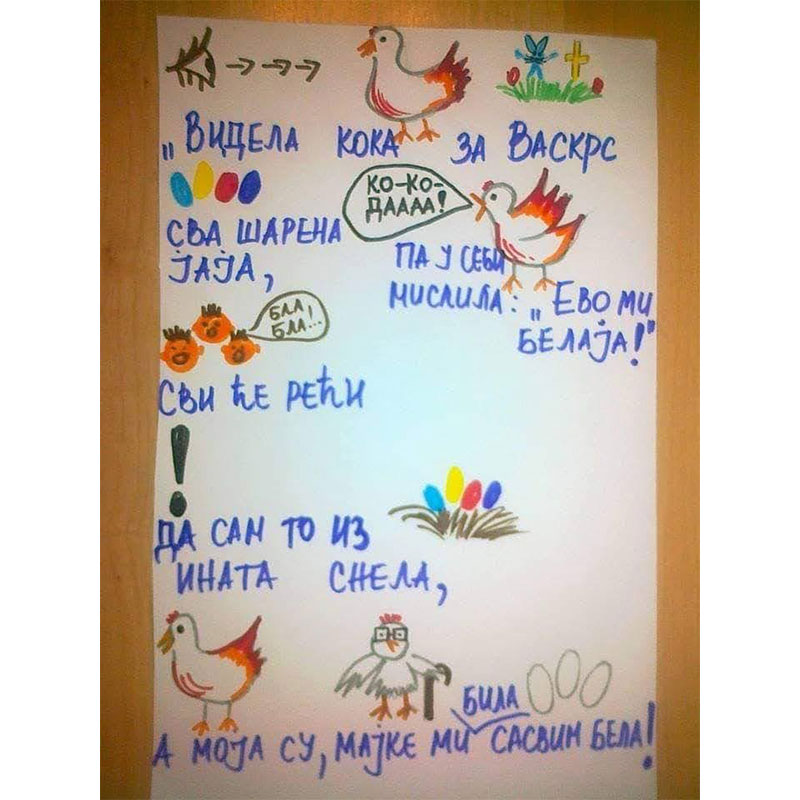 „Видела кока за Васкрс
КО-КО-
ДАААА!
СВА ШАРЕНА
ЈАЈА,
ПА У СЕБИ
МИСЛИЛА: „ЕВО МИ
БЕЛАЈА!"
БЛА,
БЛА...
СВИ ЋЕ РЕЋИ
!
ДА САМ ТО ИЗ
ИНАТА СНЕЛА,
БИЛА
А МОЈА СУ, МАЈКЕ МИ САСВИМ БЕЛА!